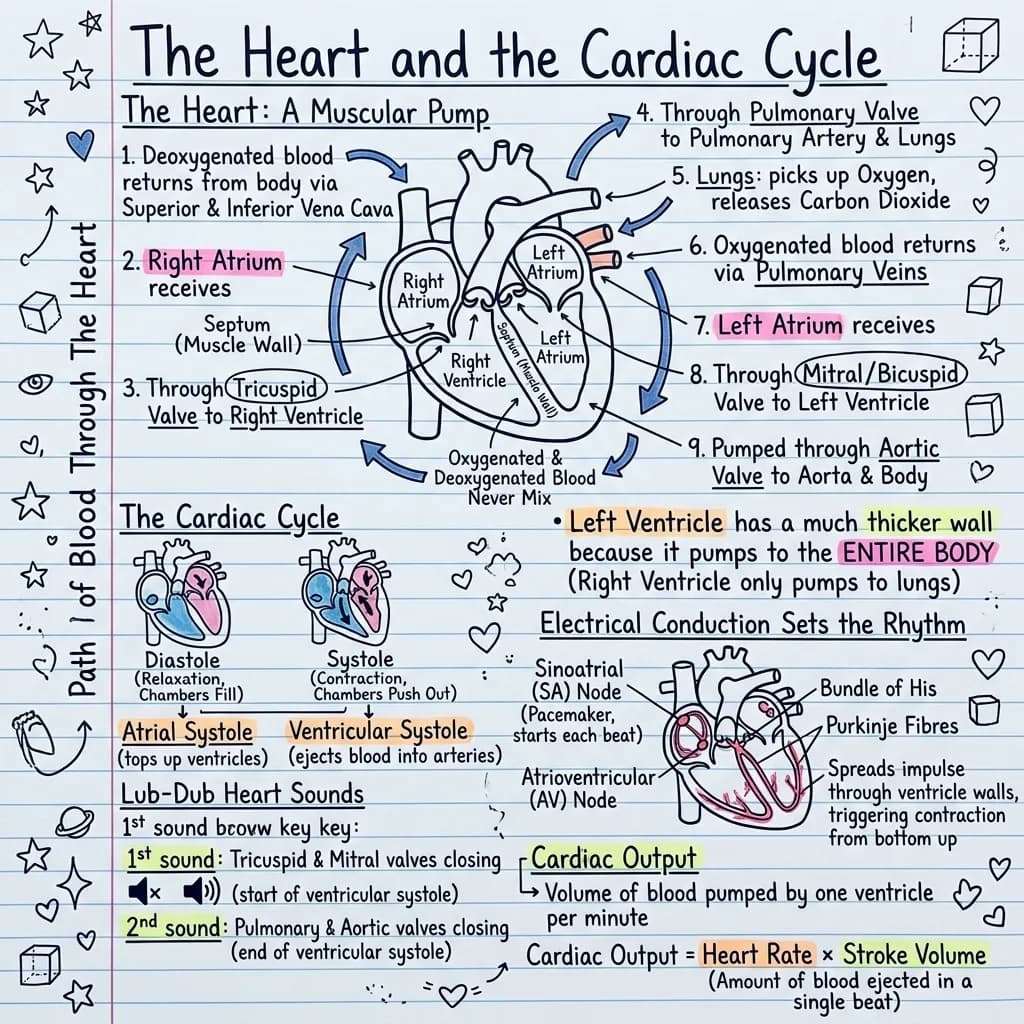 The Heart and the Cardiac Cycle
The Heart: A Muscular Pump
1. Deoxygenated blood
returns from body via
Superior & Inferior Vena Cava
2. Right Atrium
receives
Septum
(Muscle Wall)
3. Through Tricuspid
Valve to Right Ventricle
Right
Atrium
Left
Atrium
Right
Ventricle
Left
Atrium
(Muscle Wall)
Oxygenated &
Deoxygenated Blood
Never Mix
4. Through Pulmonary Valve
to Pulmonary Artery & Lungs
5. Lungs: picks up Oxygen,
releases Carbon Dioxide
6. Oxygenated blood returns
via Pulmonary Veins
7. Left Atrium receives
8. Through Mitral/Bicuspid
Valve to Left Ventricle
9. Pumped through Aortic
Valve to Aorta & Body
Path 1 of Blood Through The Heart
• Left Ventricle has a much thicker wall
because it pumps to the ENTIRE BODY
(Right Ventricle only pumps to lungs)
The Cardiac Cycle
Diastole
(Relaxation,
Chambers Fill)
Systole
(Contraction,
Chambers Push Out)
Atrial Systole
(tops up ventricles)
Ventricular Systole
(ejects blood into arteries)
Lub-Dub Heart Sounds
1st sound bcovw key key:
1st sound: Tricuspid & Mitral valves closing
(start of ventricular systole)
2nd sound: Pulmonary & Aortic valves closing
(end of ventricular systole)
Electrical Conduction Sets the Rhythm
Sinoatrial
(SA) Node
(Pacemaker,
starts each beat)
Atrioventricular
(AV) Node
Bundle of His
Purkinje Fibres
Spreads impulse
through ventricle walls,
triggering contraction
from bottom up
Cardiac Output
Volume of blood pumped by one ventricle
per minute
Cardiac Output = Heart Rate × Stroke Volume
(Amount of blood ejected in a
single beat)